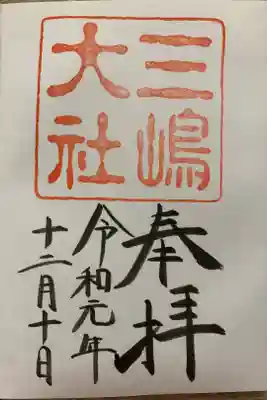 三嶋
大社
奉拝
令和元年
十二月十日